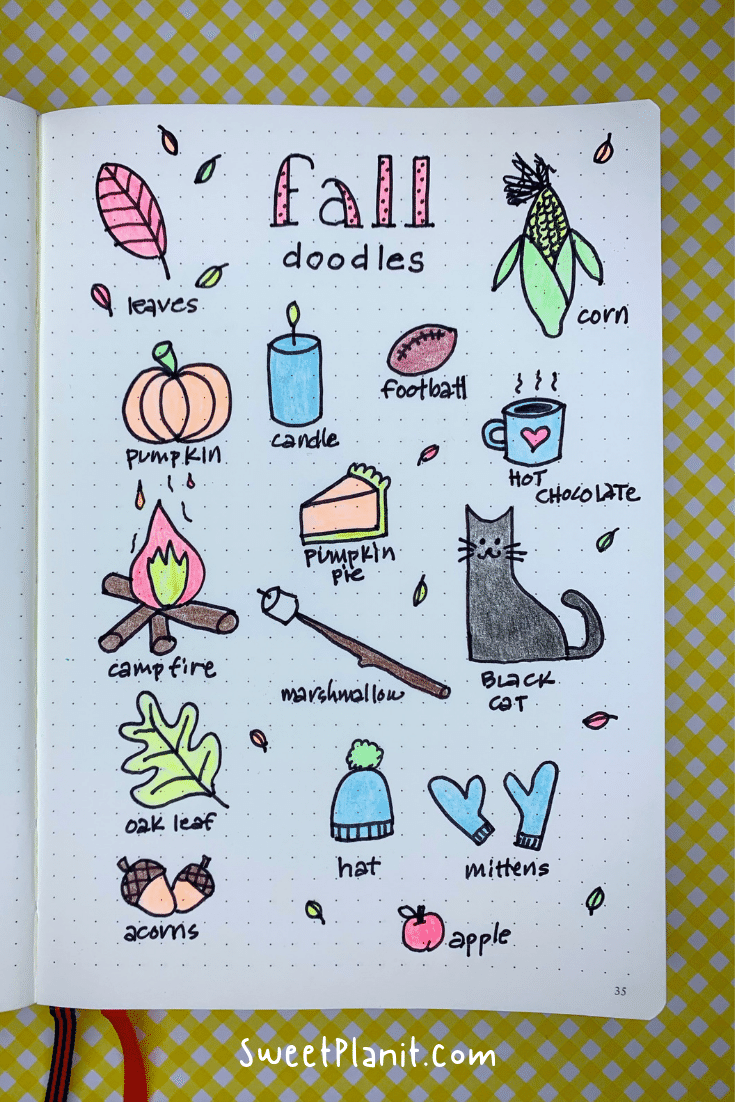 fall
doodles
leaves
corn
football
candle
pumpkin
HOT
CHOCOLATE
pumpkin
pie
campfire
marshmallow
BLACK
CAT
oak leaf
hat
mittens
acorns
apple
35
SweetPlanit.com